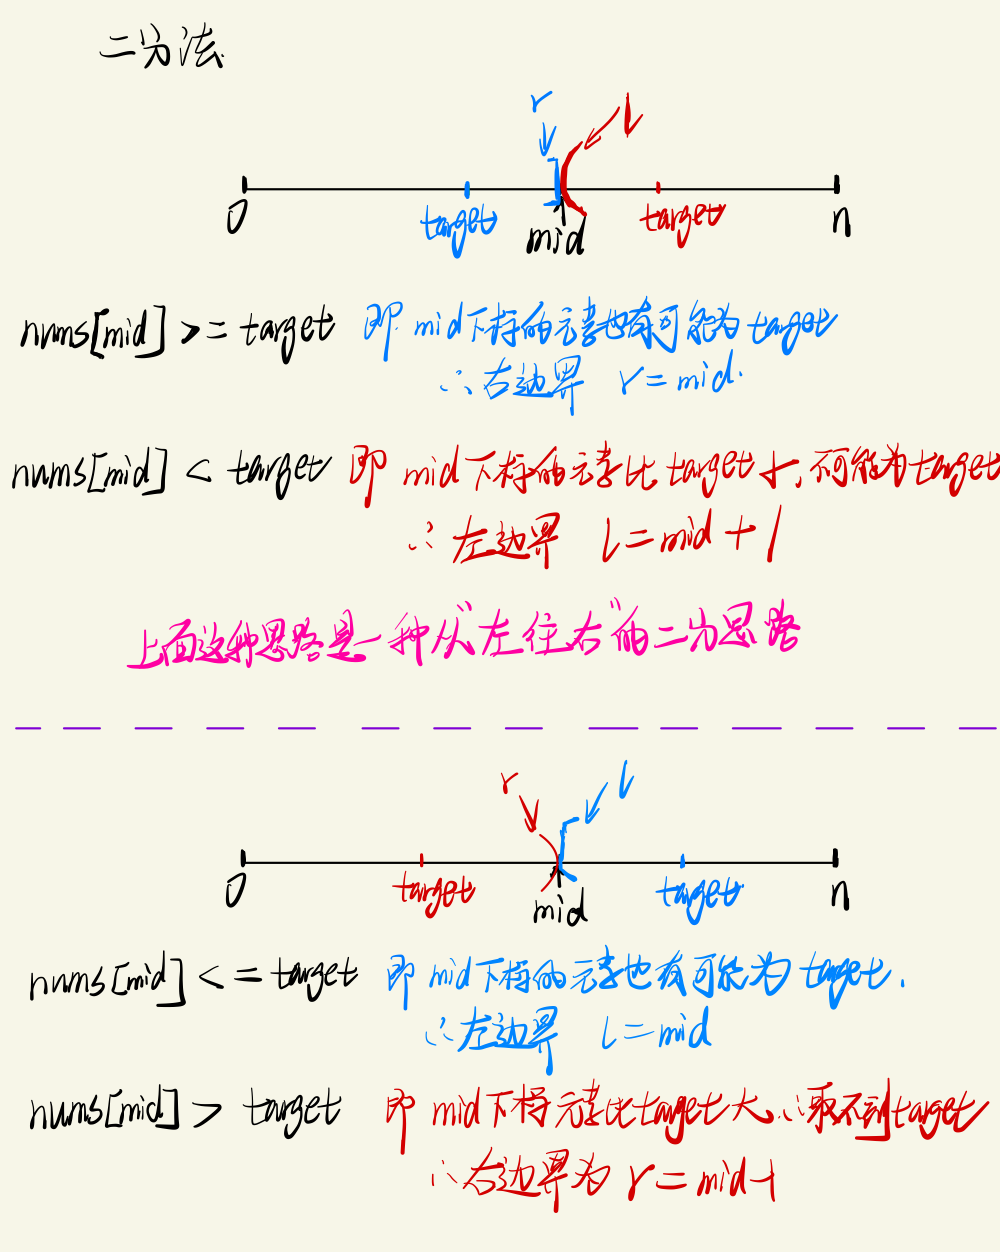 二分法
r l
0 target mid target n
nums[mid] >= target 即 mid下标的元素也有可能为target
∴右边界 r=mid.
nums[mid] < target 即 mid下标的元素比 target 小,不可能为target
∴左边界 l=mid+1
上面这种思路是一种从"左往右"的二分思路
r l
0 target mid target n
nums[mid] <= target 即 mid下标的元素也有可能为 target.
∴左边界 l=mid
nums[mid] > target 即 mid下标元素比target大.∴取不到target
∴右边界为 r=mid-1